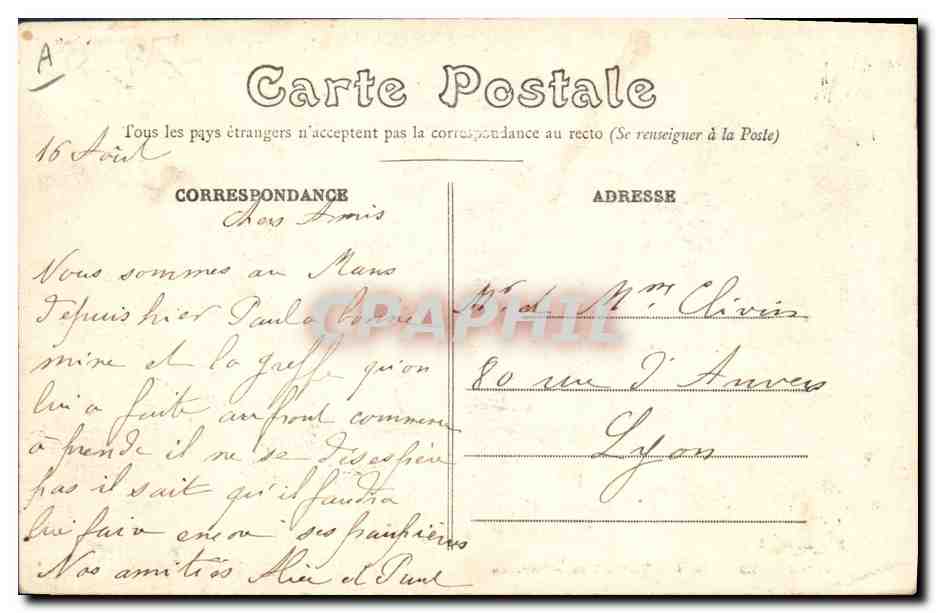 A
Carte Postale
Tous les pays étrangers n'acceptent pas la correspondance au recto (Se renseigner à la Poste)
16 Août
CORRESPONDANCE
ADRESSE
Chers Amis
Nous sommes au Mans
depuis hier Paul a bonne
mine et la greffe qu'on
lui a faite au front commence
à prendre il ne se désespère
pas il sait qu'il faudra
lui faire encore ses paupières
Nos amitiés Alice et Paul
Mr. et Mme. Clivin
80 rue d'Anvers
Lyon
CPAPHIL